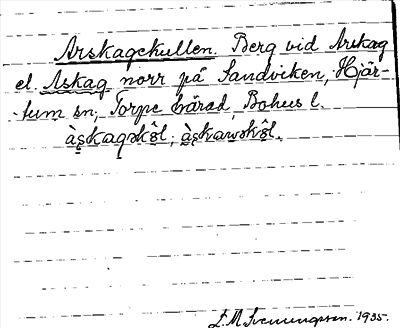 Arskagekullen. Berg vid Arskag
el. Askag norr på Sandviken, Hjär-
tum sn, Torpe härad, Bohus l.
àskagskôl, àskawskôl.
S. M. Svenungsson. 1935.